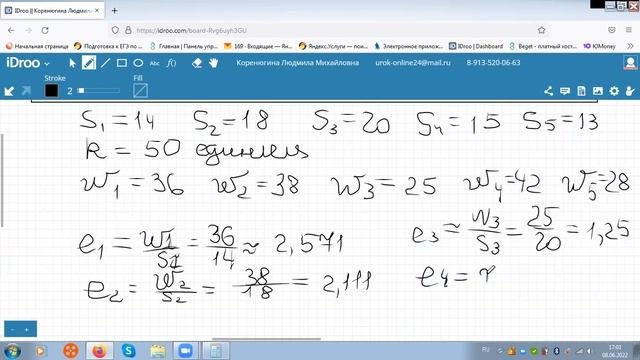 iDroo || Коренюгина Людмила
https://idroo.com/board-Rvg6uyh3GU
Начальная страница
Подготовка к ЕГЭ по
Главная | Панель упр
169 · Входящие — Ян
Яндекс.Услуги — пои
Электронное прилож
IDroo | Dashboard
Beget - платный хост
ЮMoney
iDroo
Коренюгина Людмила Михайловна
urok-online24@mail.ru
8-913-520-06-63
Stroke
Fill
2
S₁ = 14 S₂ = 18 S₃ = 20 S₄ = 15 S₅ = 13
k = 50 единиц
W₁ = 36 W₂ = 38 W₃ = 25 W₄ = 42 W₅ = 28
e₁ = W₁/S₁ = 36/14 ≈ 2,571
e₃ = W₃/S₃ = 25/20 = 1,25
e₂ = W₂/S₂ = 38/18 = 2,111
e₄ =
RU
17:01
08.06.2022